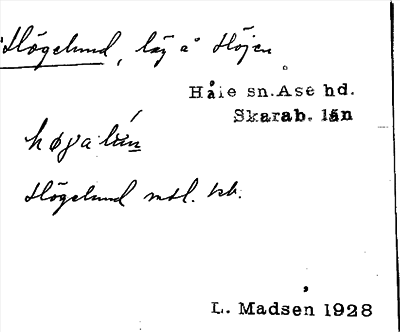 Högelund, låg å Höjen
Håle sn. Åse hd.
Skarab. län
Högelund mtl. kb.
L. Madsen 1928